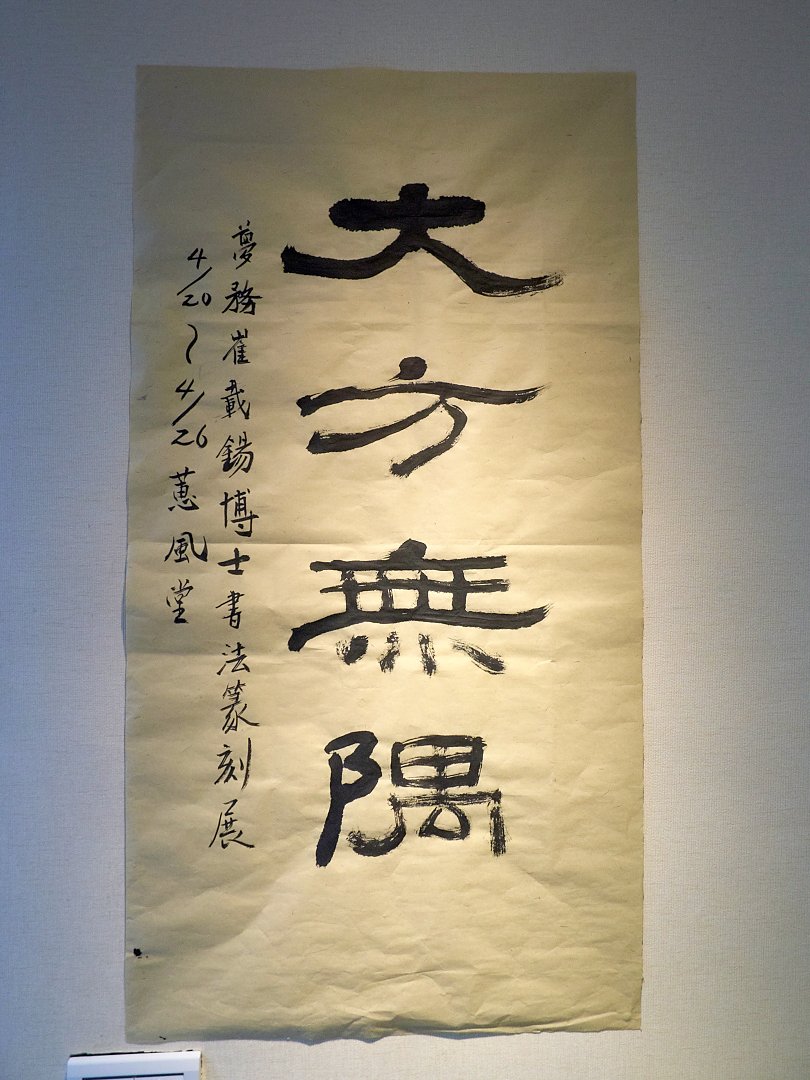 大方無隅
夢務崔載錫博士書法篆刻展
4/20～4/26 蕙風堂